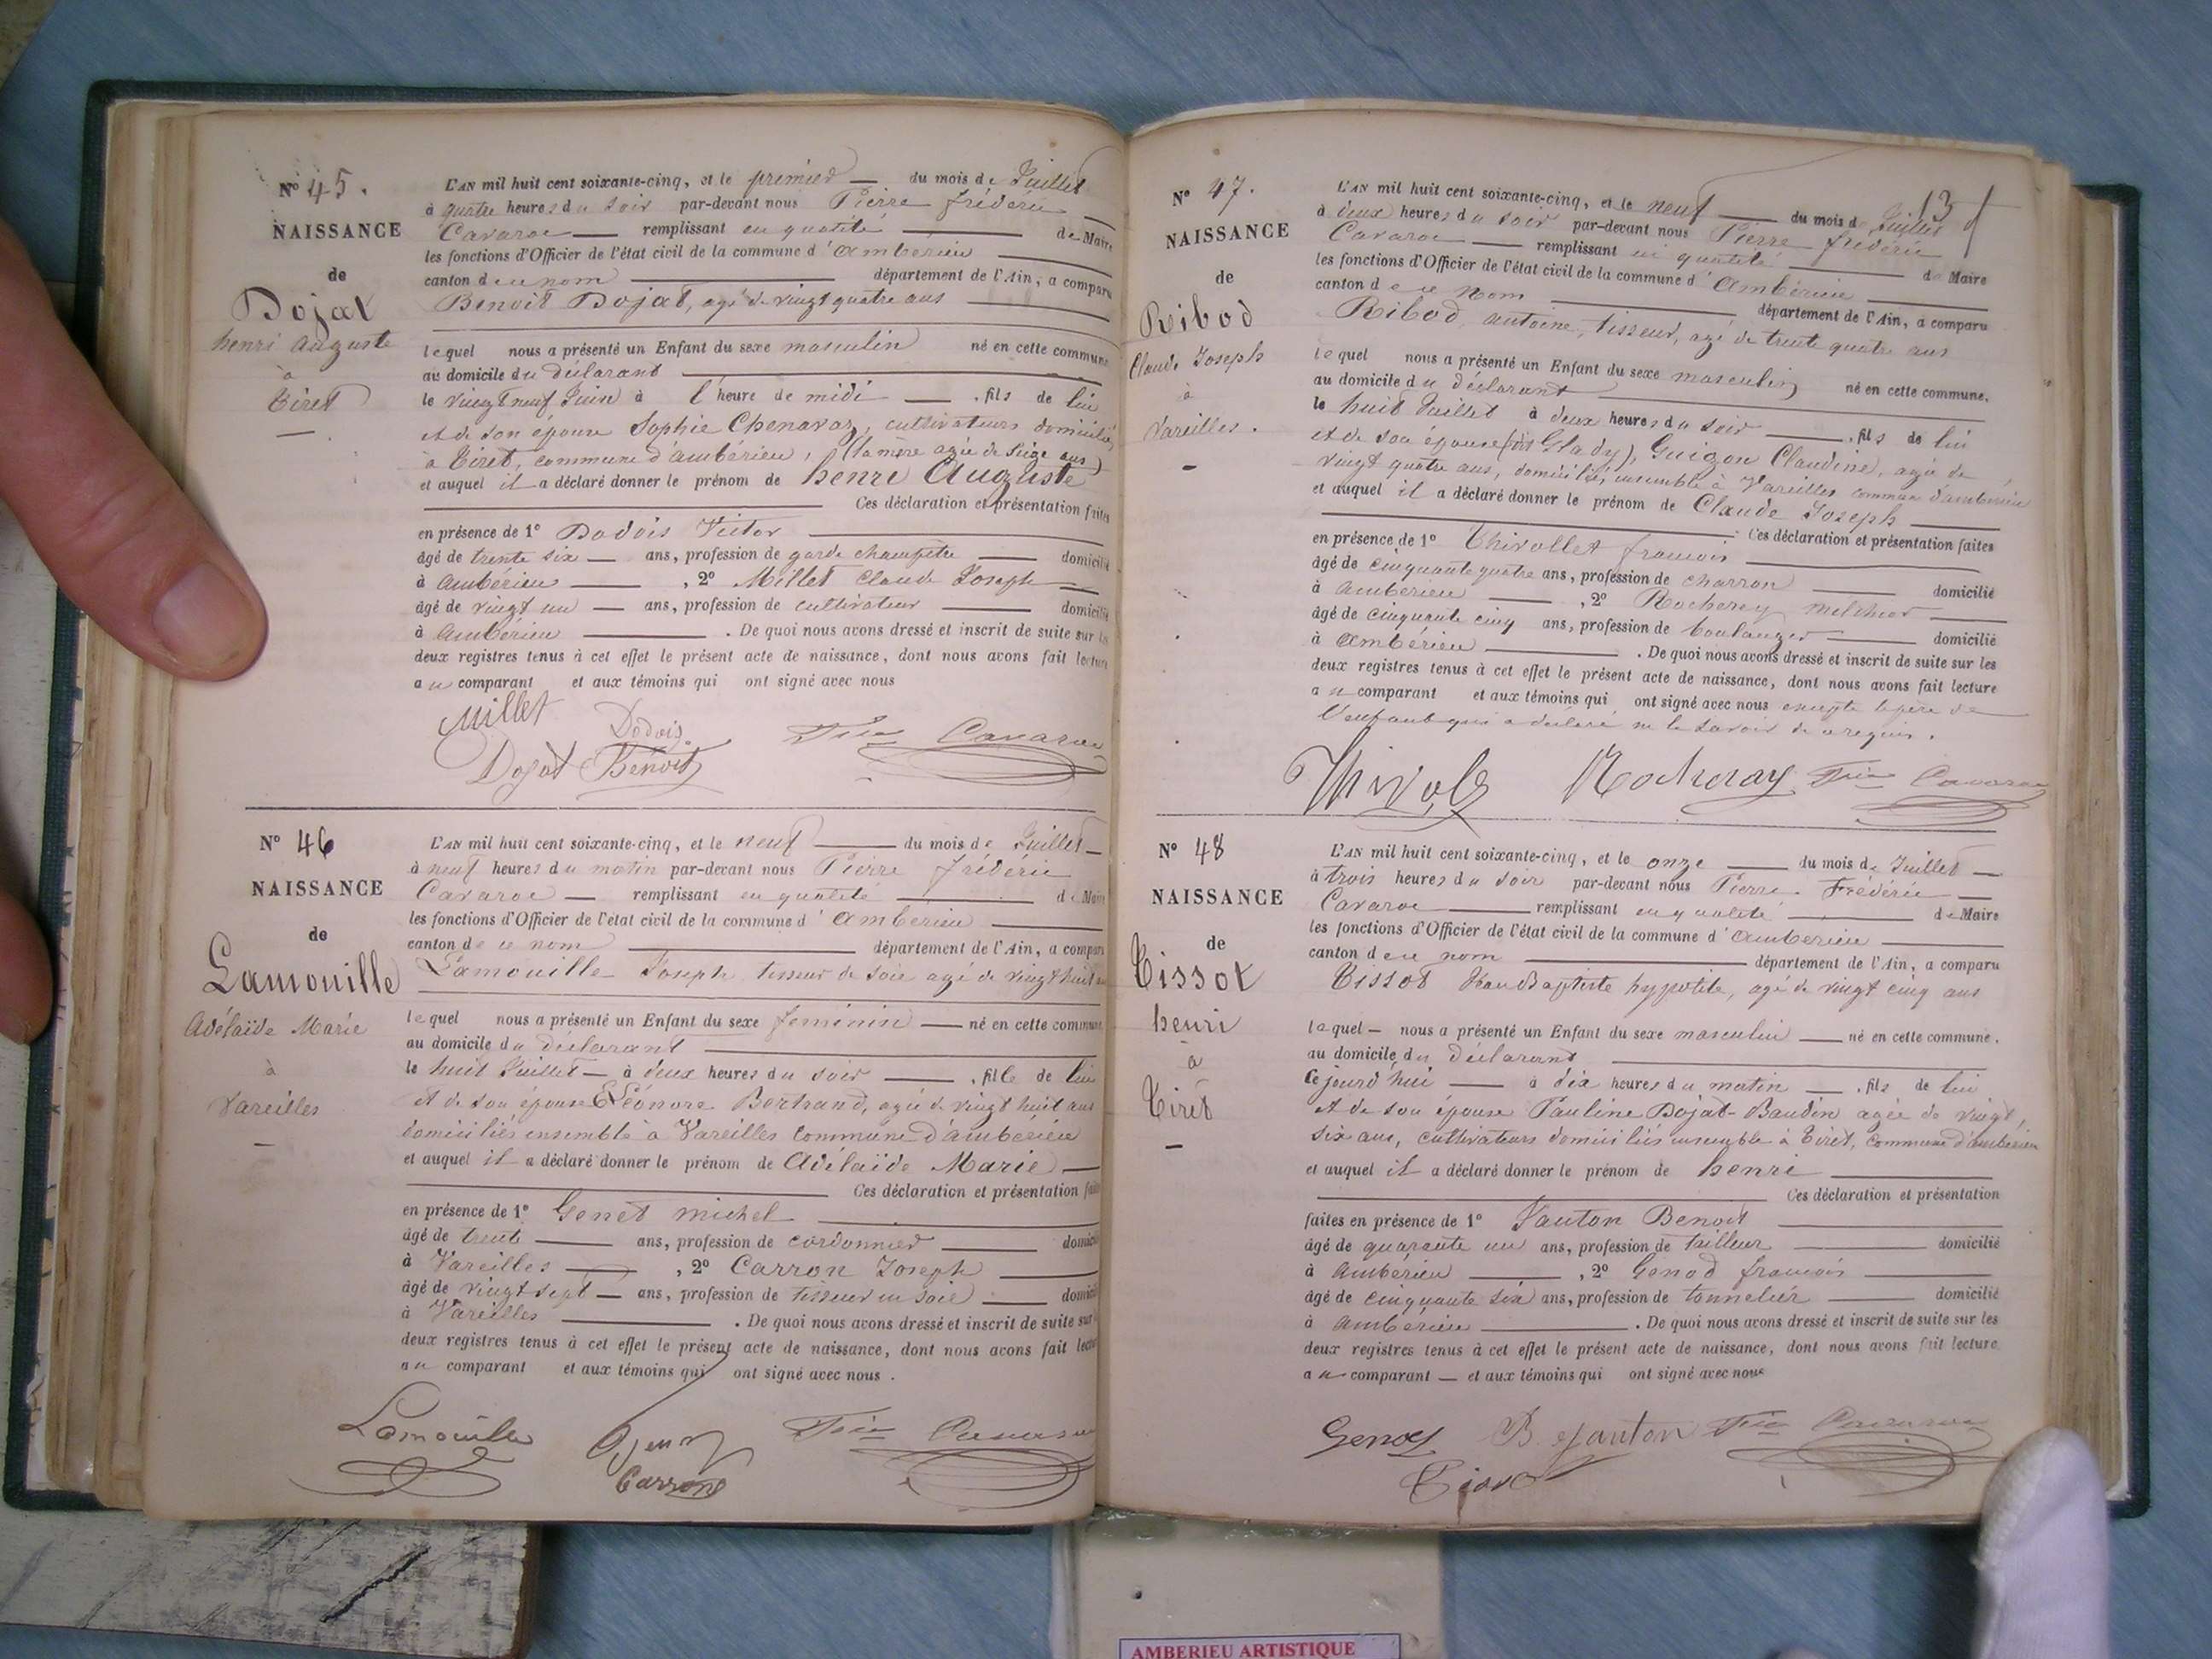 N° 45.
NAISSANCE
de
Dojat
henri Auguste
à
Tiret
L'AN mil huit cent soixante-cinq, et le premier du mois de Juillet
à quatre heures du soir par-devant nous Pierre frédéric
Cavaroc remplissant en qualité de Maire
les fonctions d'Officier de l'état civil de la commune d'ambérieu
canton de ce nom département de l'Ain, a comparu
Benoit Dojat, agé de vingt quatre ans
lequel nous a présenté un Enfant du sexe masculin né en cette commune
au domicile du déclarant
le vingt neuf Juin à l'heure de midi , fils de lui
et de son épouse Sophie Chenavaz, cultivateurs domiciliés
à Tiret, commune d'ambérieu, (la mère agée de seize ans)
et auquel il a déclaré donner le prénom de henri Auguste
Ces déclaration et présentation faites
en présence de 1° Dodois Victor
âgé de trente six ans, profession de garde champêtre domicilié
à ambérieu , 2° Millet Claude Joseph
âgé de vingt un ans, profession de cultivateur domicilié
à ambérieu . De quoi nous avons dressé et inscrit de suite sur les
deux registres tenus à cet effet le présent acte de naissance, dont nous avons fait lecture
au comparant et aux témoins qui ont signé avec nous
Millet Dodois
Dojat Benoit Fric Cavaroc
N° 46
NAISSANCE
de
Lamouille
Adélaïde Marie
à
Vareilles
L'AN mil huit cent soixante-cinq, et le neuf du mois de Juillet
à neuf heures du matin par-devant nous Pierre frédéric
Cavaroc remplissant en qualité de Maire
les fonctions d'Officier de l'état civil de la commune d'ambérieu
canton de ce nom département de l'Ain, a comparu
Lamouille Joseph tisseur de soie agé de vingt huit ans
lequel nous a présenté un Enfant du sexe feminin né en cette commune
au domicile du déclarant
le huit Juillet à deux heures du soir , fille de lui
et de son épouse Eléonore Bertrand, agée de vingt huit ans
domiciliés ensemble à Vareilles commune d'ambérieu
et auquel il a déclaré donner le prénom de Adélaïde Marie
Ces déclaration et présentation faites
en présence de 1° Genet michel
âgé de trente ans, profession de cordonnier domicilié
à Vareilles , 2° Carron Joseph
âgé de vingt sept ans, profession de tisseur en soie domicilié
à Vareilles . De quoi nous avons dressé et inscrit de suite sur
deux registres tenus à cet effet le présent acte de naissance, dont nous avons fait lecture
au comparant et aux témoins qui ont signé avec nous .
Lamouille Fric Cavaroc
Carron
13
N° 47.
NAISSANCE
de
Ribod
Claude Joseph
à
Vareilles.
L'AN mil huit cent soixante-cinq, et le neuf du mois de Juillet
à deux heures du soir par-devant nous Pierre frédéric
Cavaroc remplissant en qualité de Maire
les fonctions d'Officier de l'état civil de la commune d'Ambérieu
canton de ce nom département de l'Ain, a comparu
Ribod antoine, tisseur, agé de trente quatre ans
lequel nous a présenté un Enfant du sexe masculin né en cette commune.
au domicile du déclarant
le huit Juillet à deux heures du soir , fils de lui
et de son épouse (dit Glady), Guigon Claudine, agée de
vingt quatre ans, domiciliés ensemble à Vareilles commune d'ambérieu
et auquel il a déclaré donner le prénom de Claude Joseph
Ces déclaration et présentation faites
en présence de 1° Thivollet francois
âgé de cinquante quatre ans, profession de charron domicilié
à ambérieu , 2° Rocheray melchior
âgé de cinquante cinq ans, profession de boulanger domicilié
à ambérieu . De quoi nous avons dressé et inscrit de suite sur les
deux registres tenus à cet effet le présent acte de naissance, dont nous avons fait lecture
au comparant et aux témoins qui ont signé avec nous excepté le père de
l'enfant qui a déclaré ne le savoir de ce requis.
Rocheray Fric Cavaroc
N° 48
NAISSANCE
de
Tissot
henri
à
Tiret
L'AN mil huit cent soixante-cinq, et le onze du mois de Juillet
à trois heures du soir par-devant nous Pierre Frédéric
Cavaroc remplissant en qualité de Maire
les fonctions d'Officier de l'état civil de la commune d'ambérieu
canton de ce nom département de l'Ain, a comparu
Tissot Jean Baptiste hypolite, agé de vingt cinq ans
lequel nous a présenté un Enfant du sexe masculin né en cette commune.
au domicile du déclarant
Cejourd'hui à dix heures du matin , fils de lui
et de son épouse Pauline Dojat-Baudin agée de vingt
six ans, cultivateurs domiciliés ensemble à Tiret, commune d'ambérieu
et auquel il a déclaré donner le prénom de henri
Ces déclaration et présentation
faites en présence de 1° Janton Benoit
âgé de quarante un ans, profession de tailleur domicilié
à ambérieu , 2° Genod francois
âgé de cinquante six ans, profession de tonnelier domicilié
à ambérieu . De quoi nous avons dressé et inscrit de suite sur les
deux registres tenus à cet effet le présent acte de naissance, dont nous avons fait lecture
au comparant et aux témoins qui ont signé avec nous
Genod B Janton Fric Cavaroc
Tissot
AMBERIEU ARTISTIQUE